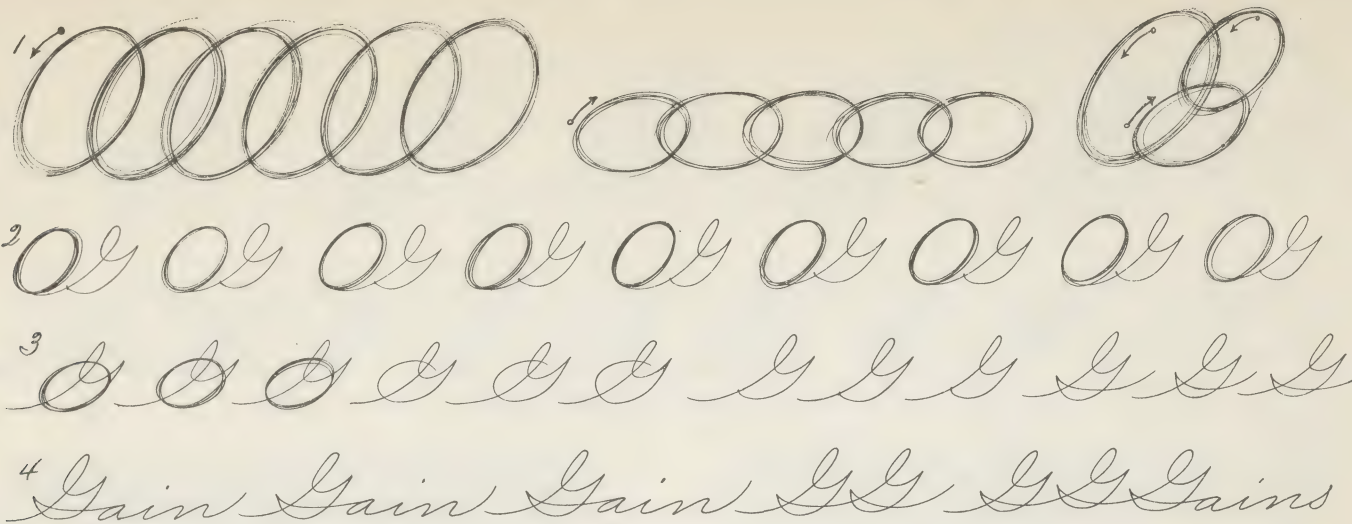 1
2 G G G G G G G G G
3 G G G G G G G G G G G G
4 Gain Gain Gain G G G G Gains